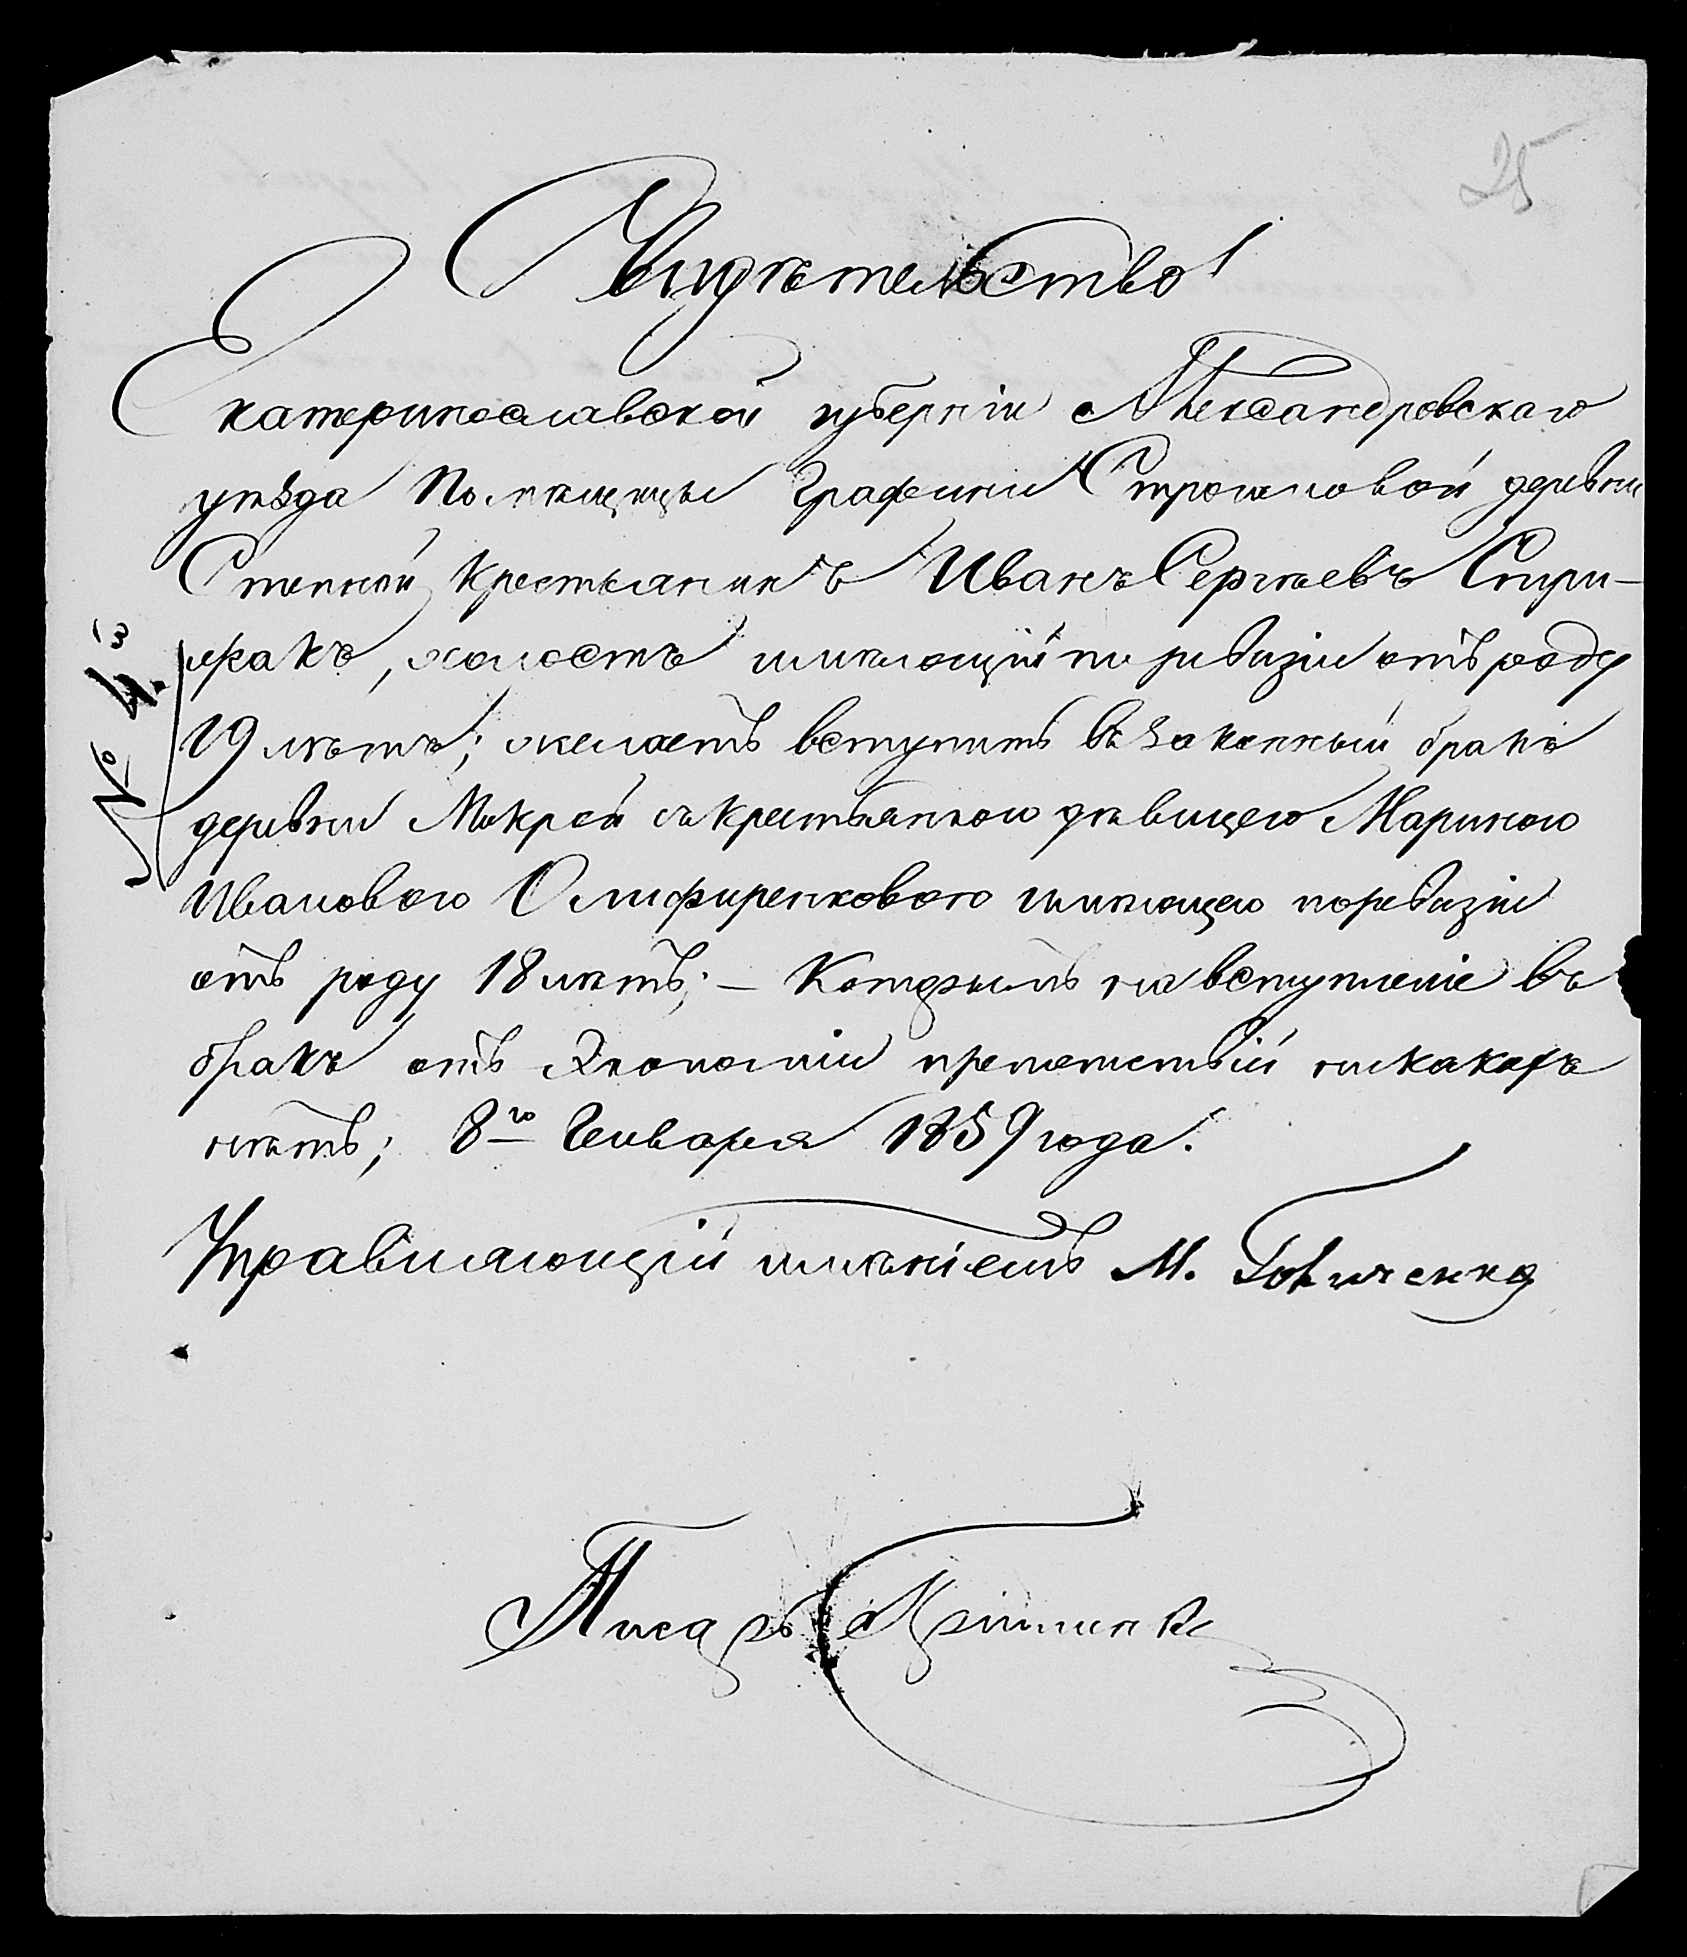 25
Свидѣтельство
Екатеринославской губерніи Александровскаго
уѣзда Помѣщицы Графини Строгоновой деревни
Степной крестьянинъ Иванъ Сергѣевъ Спири-
жакъ, холостъ имѣющій по ревизіи отъ роду
19 лѣтъ; желаетъ вступить въ законный бракъ
деревни Мокрой съ крестьянкою дѣвицею Мариною
Ивановою Олифиренковою имѣющею поревизіи
отъ роду 18 лѣтъ; — Которымъ на вступленіе въ
бракъ отъ Экономіи препятствій никакихъ
нѣтъ; 8го Генваря 1859 года.
Управляющій имѣніемъ М.
Писарь
№ 43